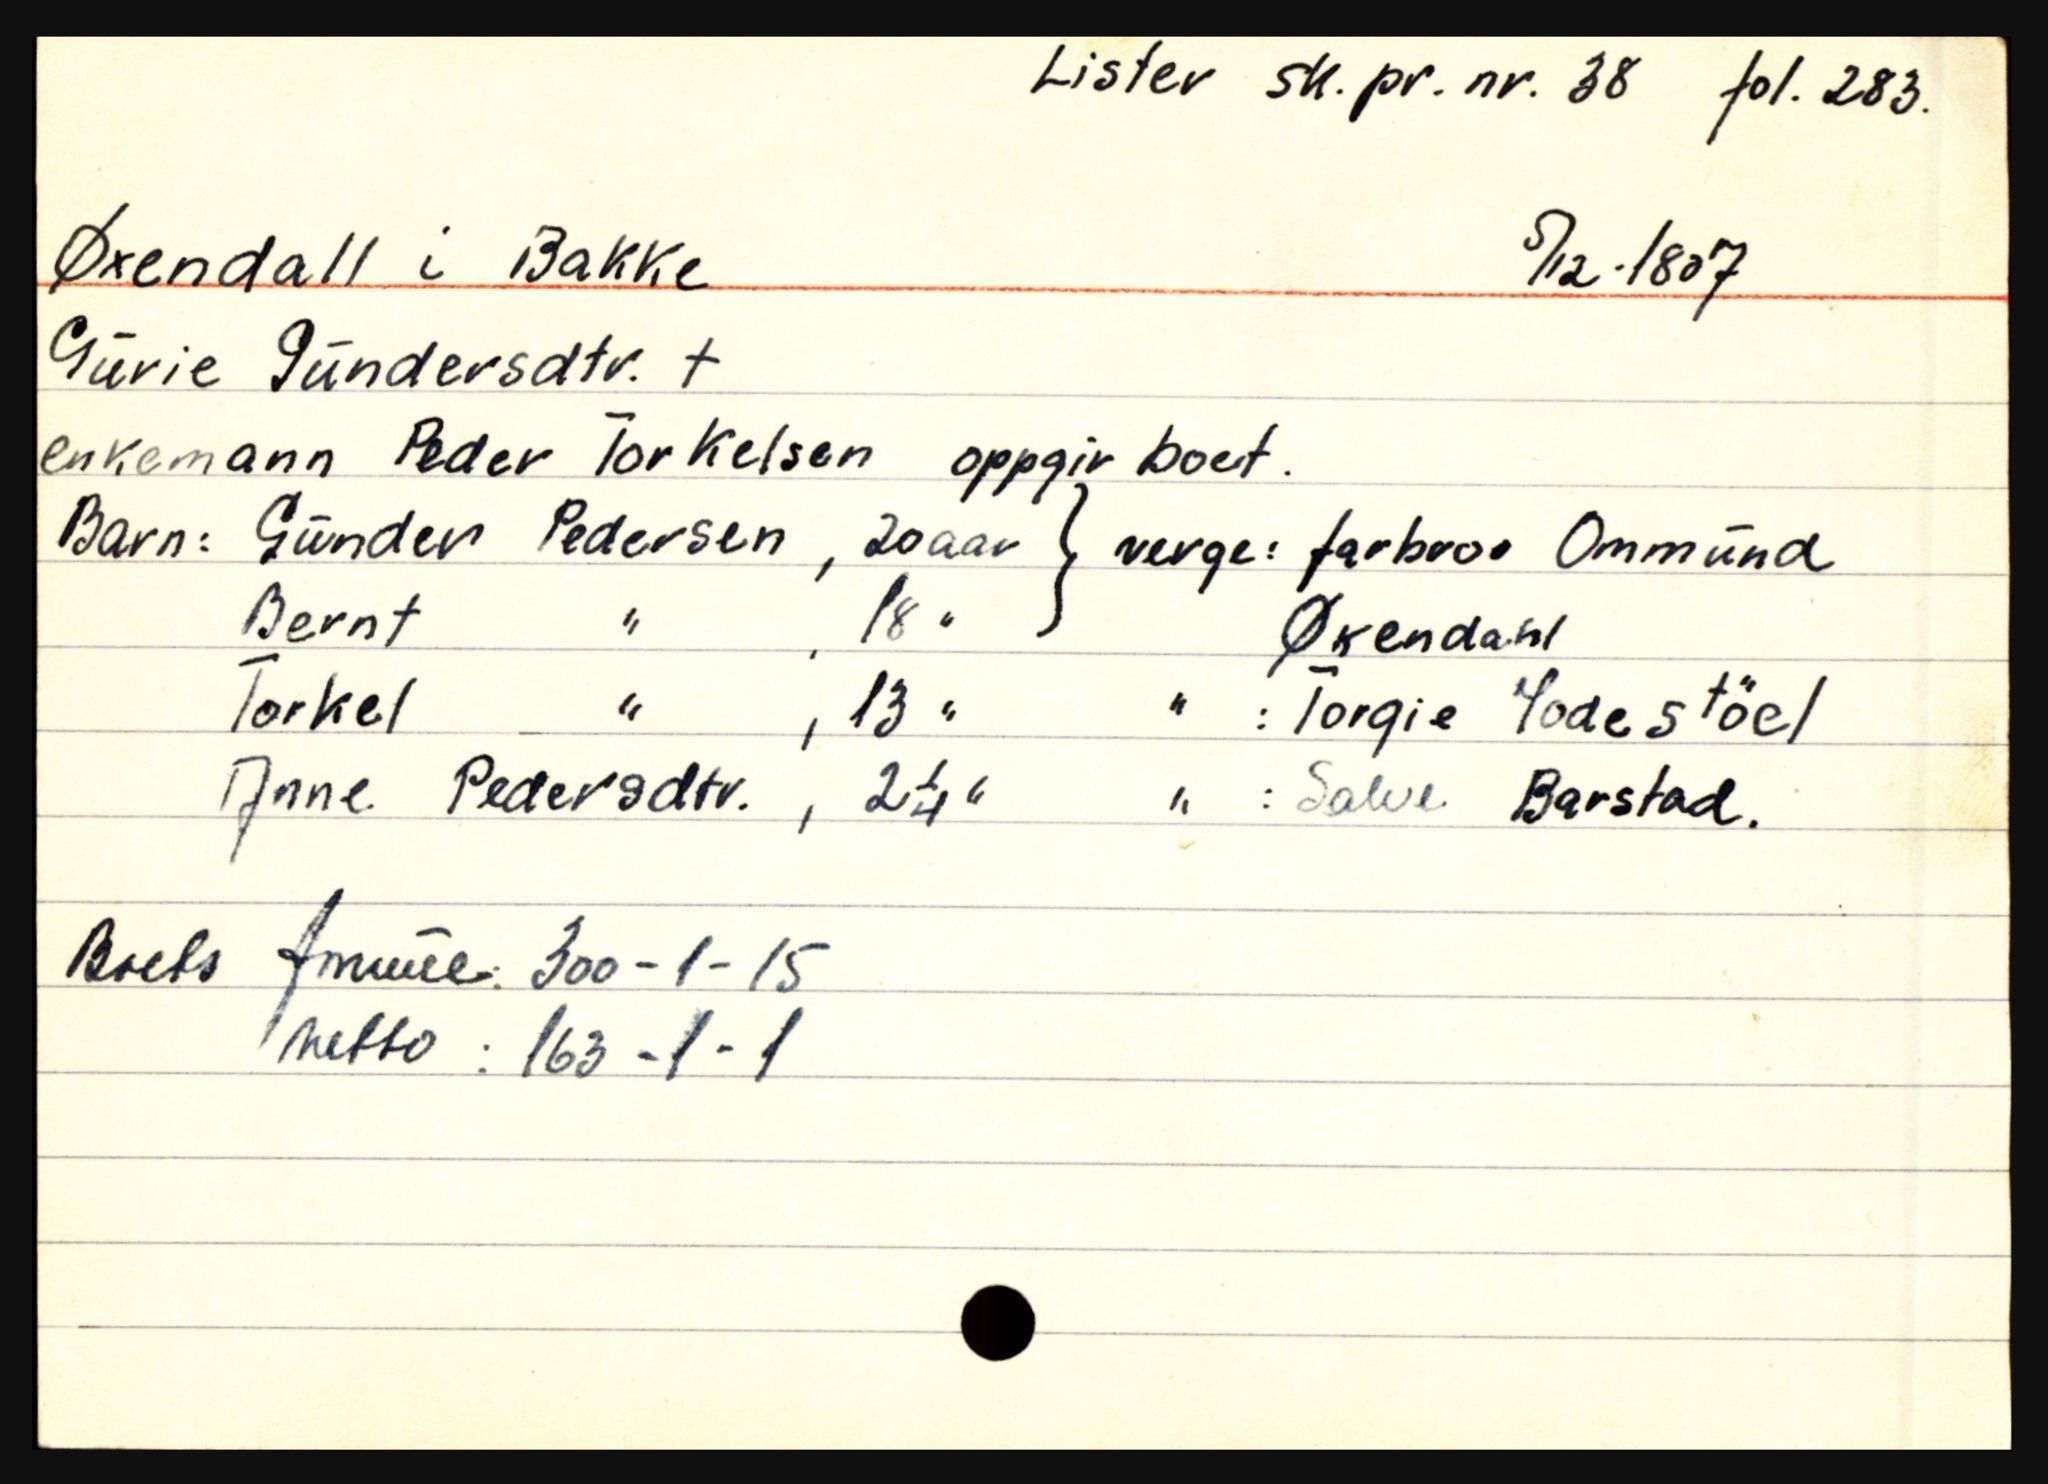 Lister sk. pr. nr. 38 fol. 283.
Øxendall i Bakke 5/12-1807
Gūrie Gūndersdtr. +
enkemann Peder Torkelsen oppgir boet.
Barn: Gūnder Pedersen, 20 aar } verge: farbror Ommūnd
Bernt " , 18 " Øxendahl
Torkel " , 13 " " : Torgie Yodestöel
Anne Pedersdtr. , 2 1/4 " " : Salve Barstad.
Boets : 300-1-15
netto : 163-1-1